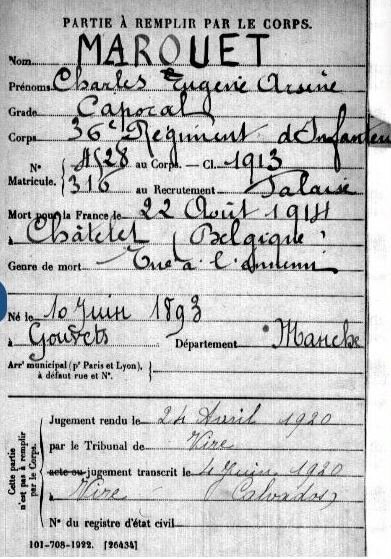 PARTIE À REMPLIR PAR LE CORPS.
Nom MARQUET
Prénoms Charles Eugène Arsène
Grade Caporal
Corps 36e Régiment d'Infanterie
N° Matricule. { 4528 au Corps. — Cl. 1913
316 au Recrutement Falaise
Mort pour la France le 22 Août 1914
à Châtelet (Belgique)
Genre de mort Tué à l'ennemi
Né le 10 Juin 1893
à Gouvets Département Manche
Arr' municipal (pr Paris et Lyon),
à défaut rue et N°.
Cette partie n'est pas à remplir par le Corps.
Jugement rendu le 24 Avril 1920
par le Tribunal de Vire
acte ou jugement transcrit le 4 Juin 1920
à Vire Calvados
N° du registre d'état civil
101-708-1922. [26434]